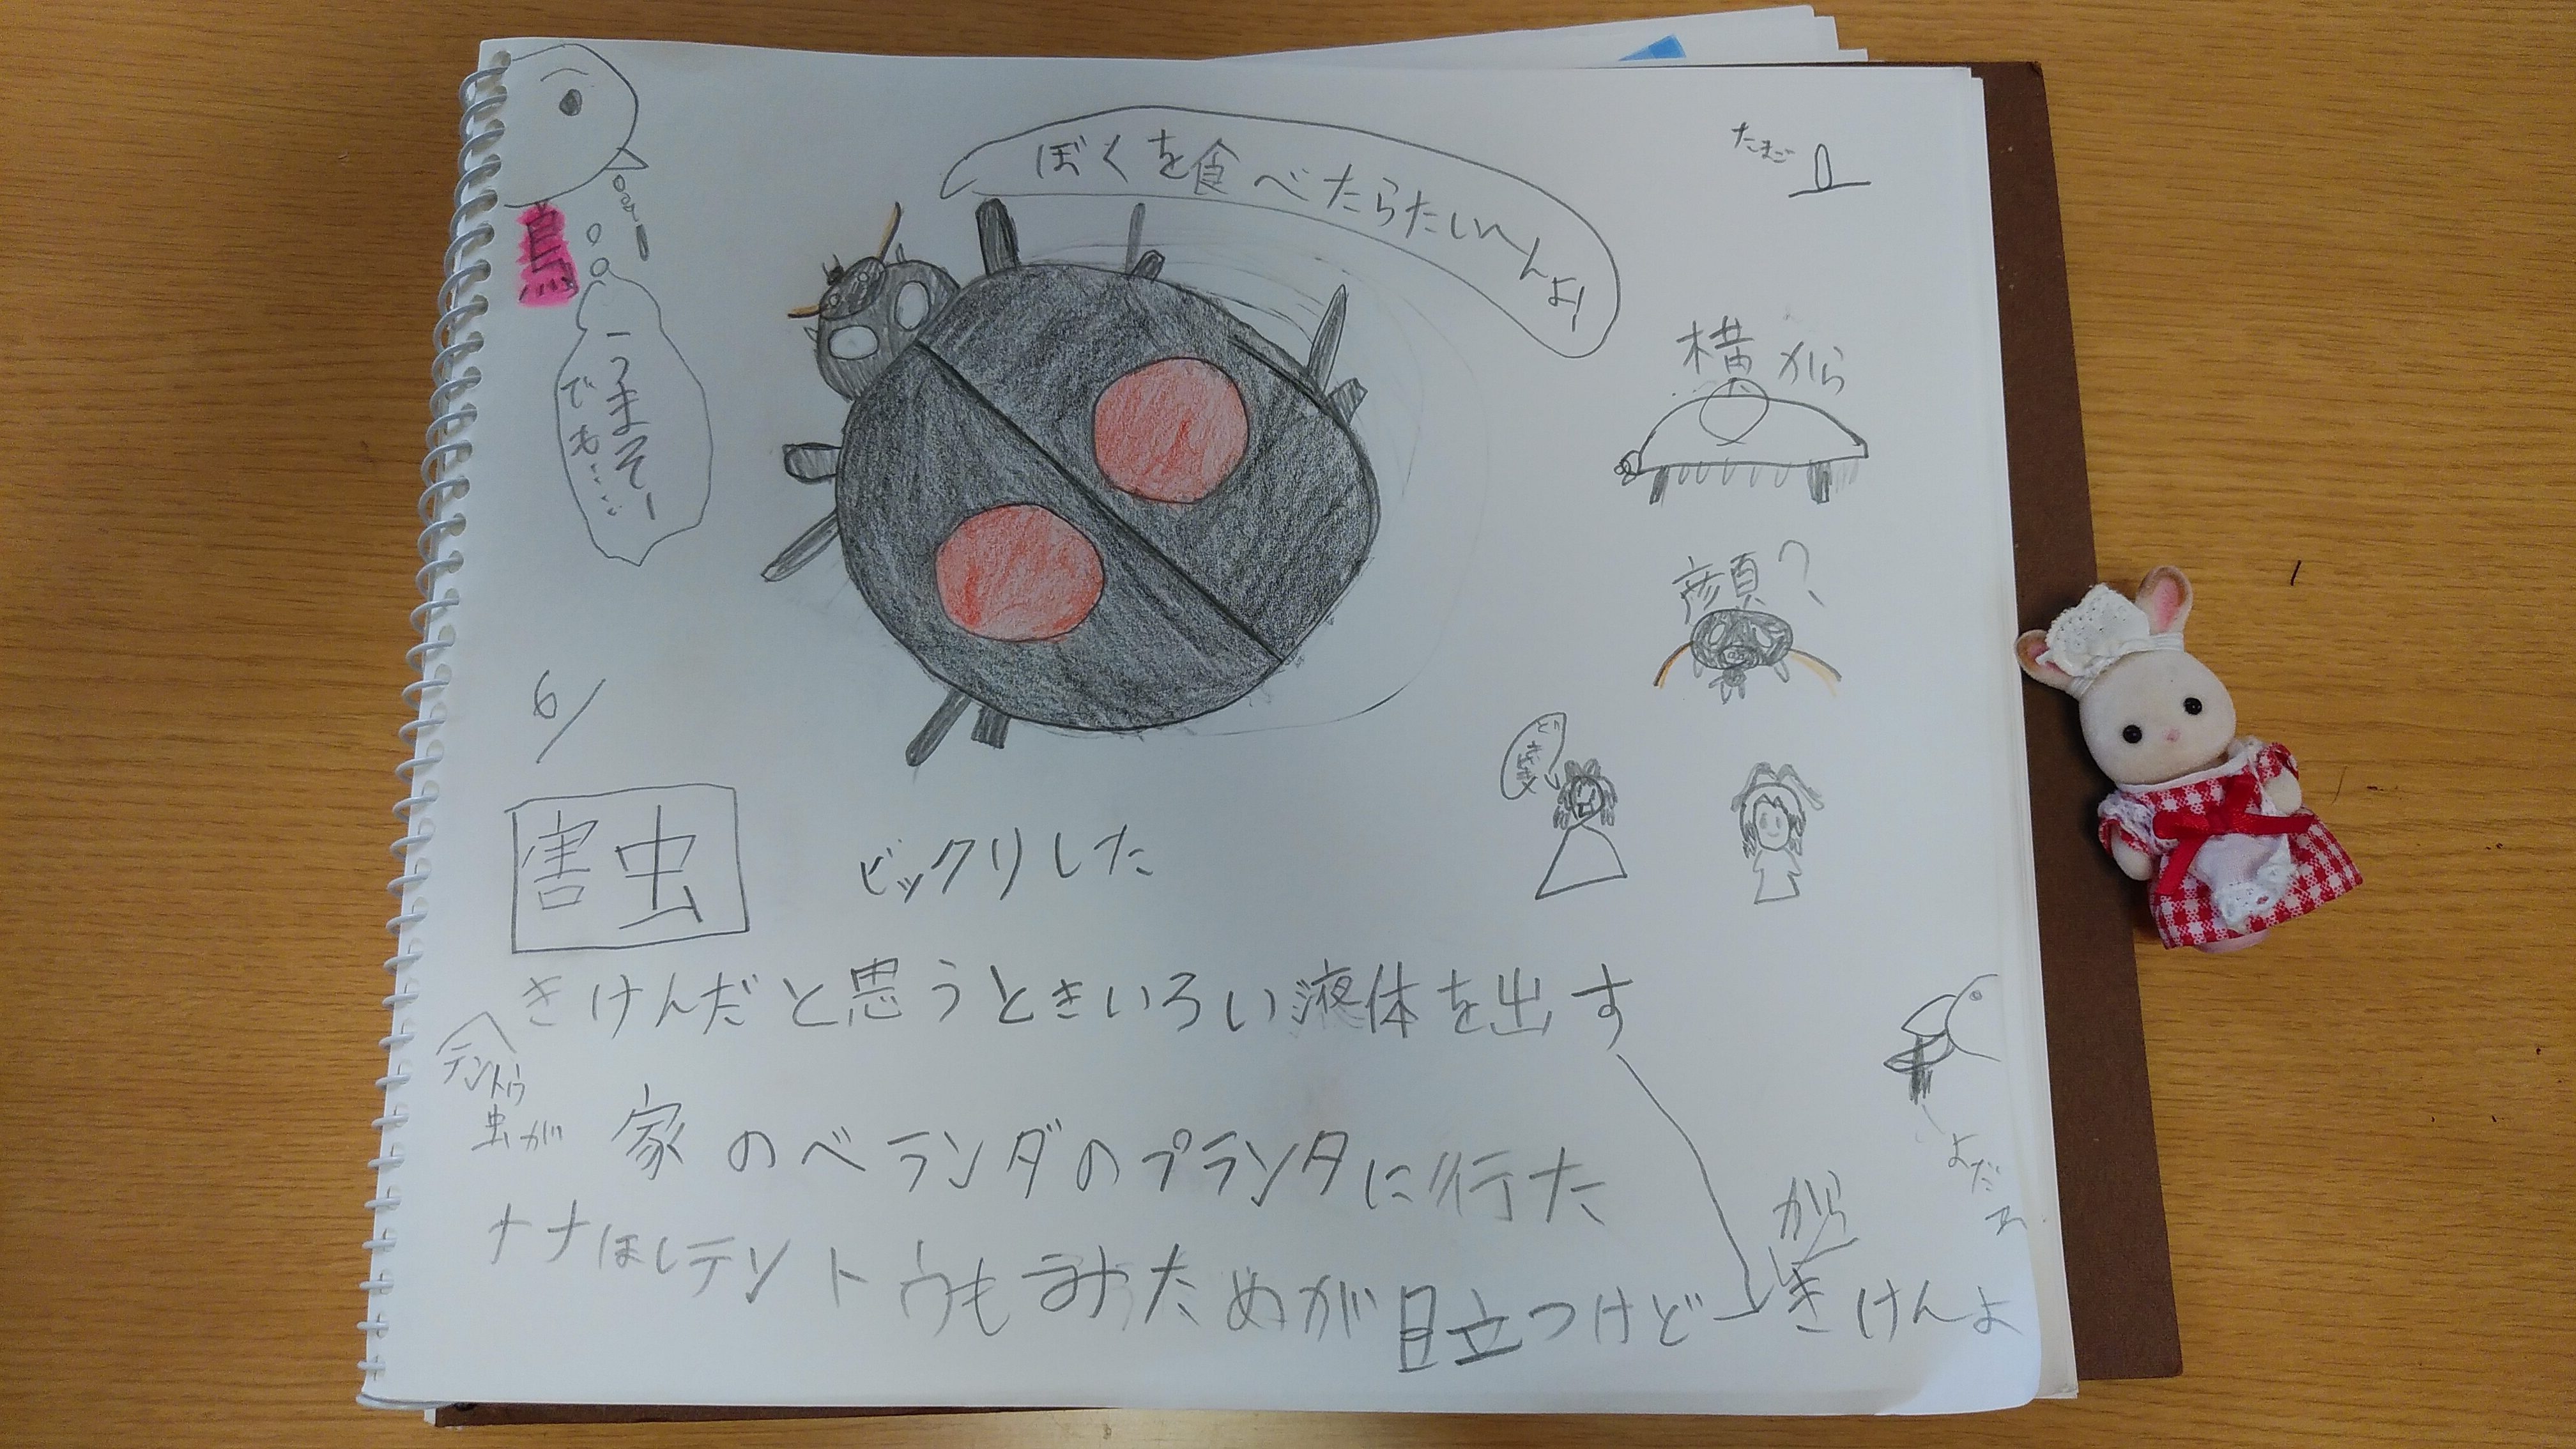 ぼくを食べたらたい〜んよ!
たまご
鳥
うまそー
でも‥‥‥
横から
顔?
6/
害虫
ビックリした
きけんだと思うときいろい液体を出す
テントウ
虫が
家のベランダのプランタに行た
よだれ
ナナほしテントウもみためが目立つけど
から
きけんよ